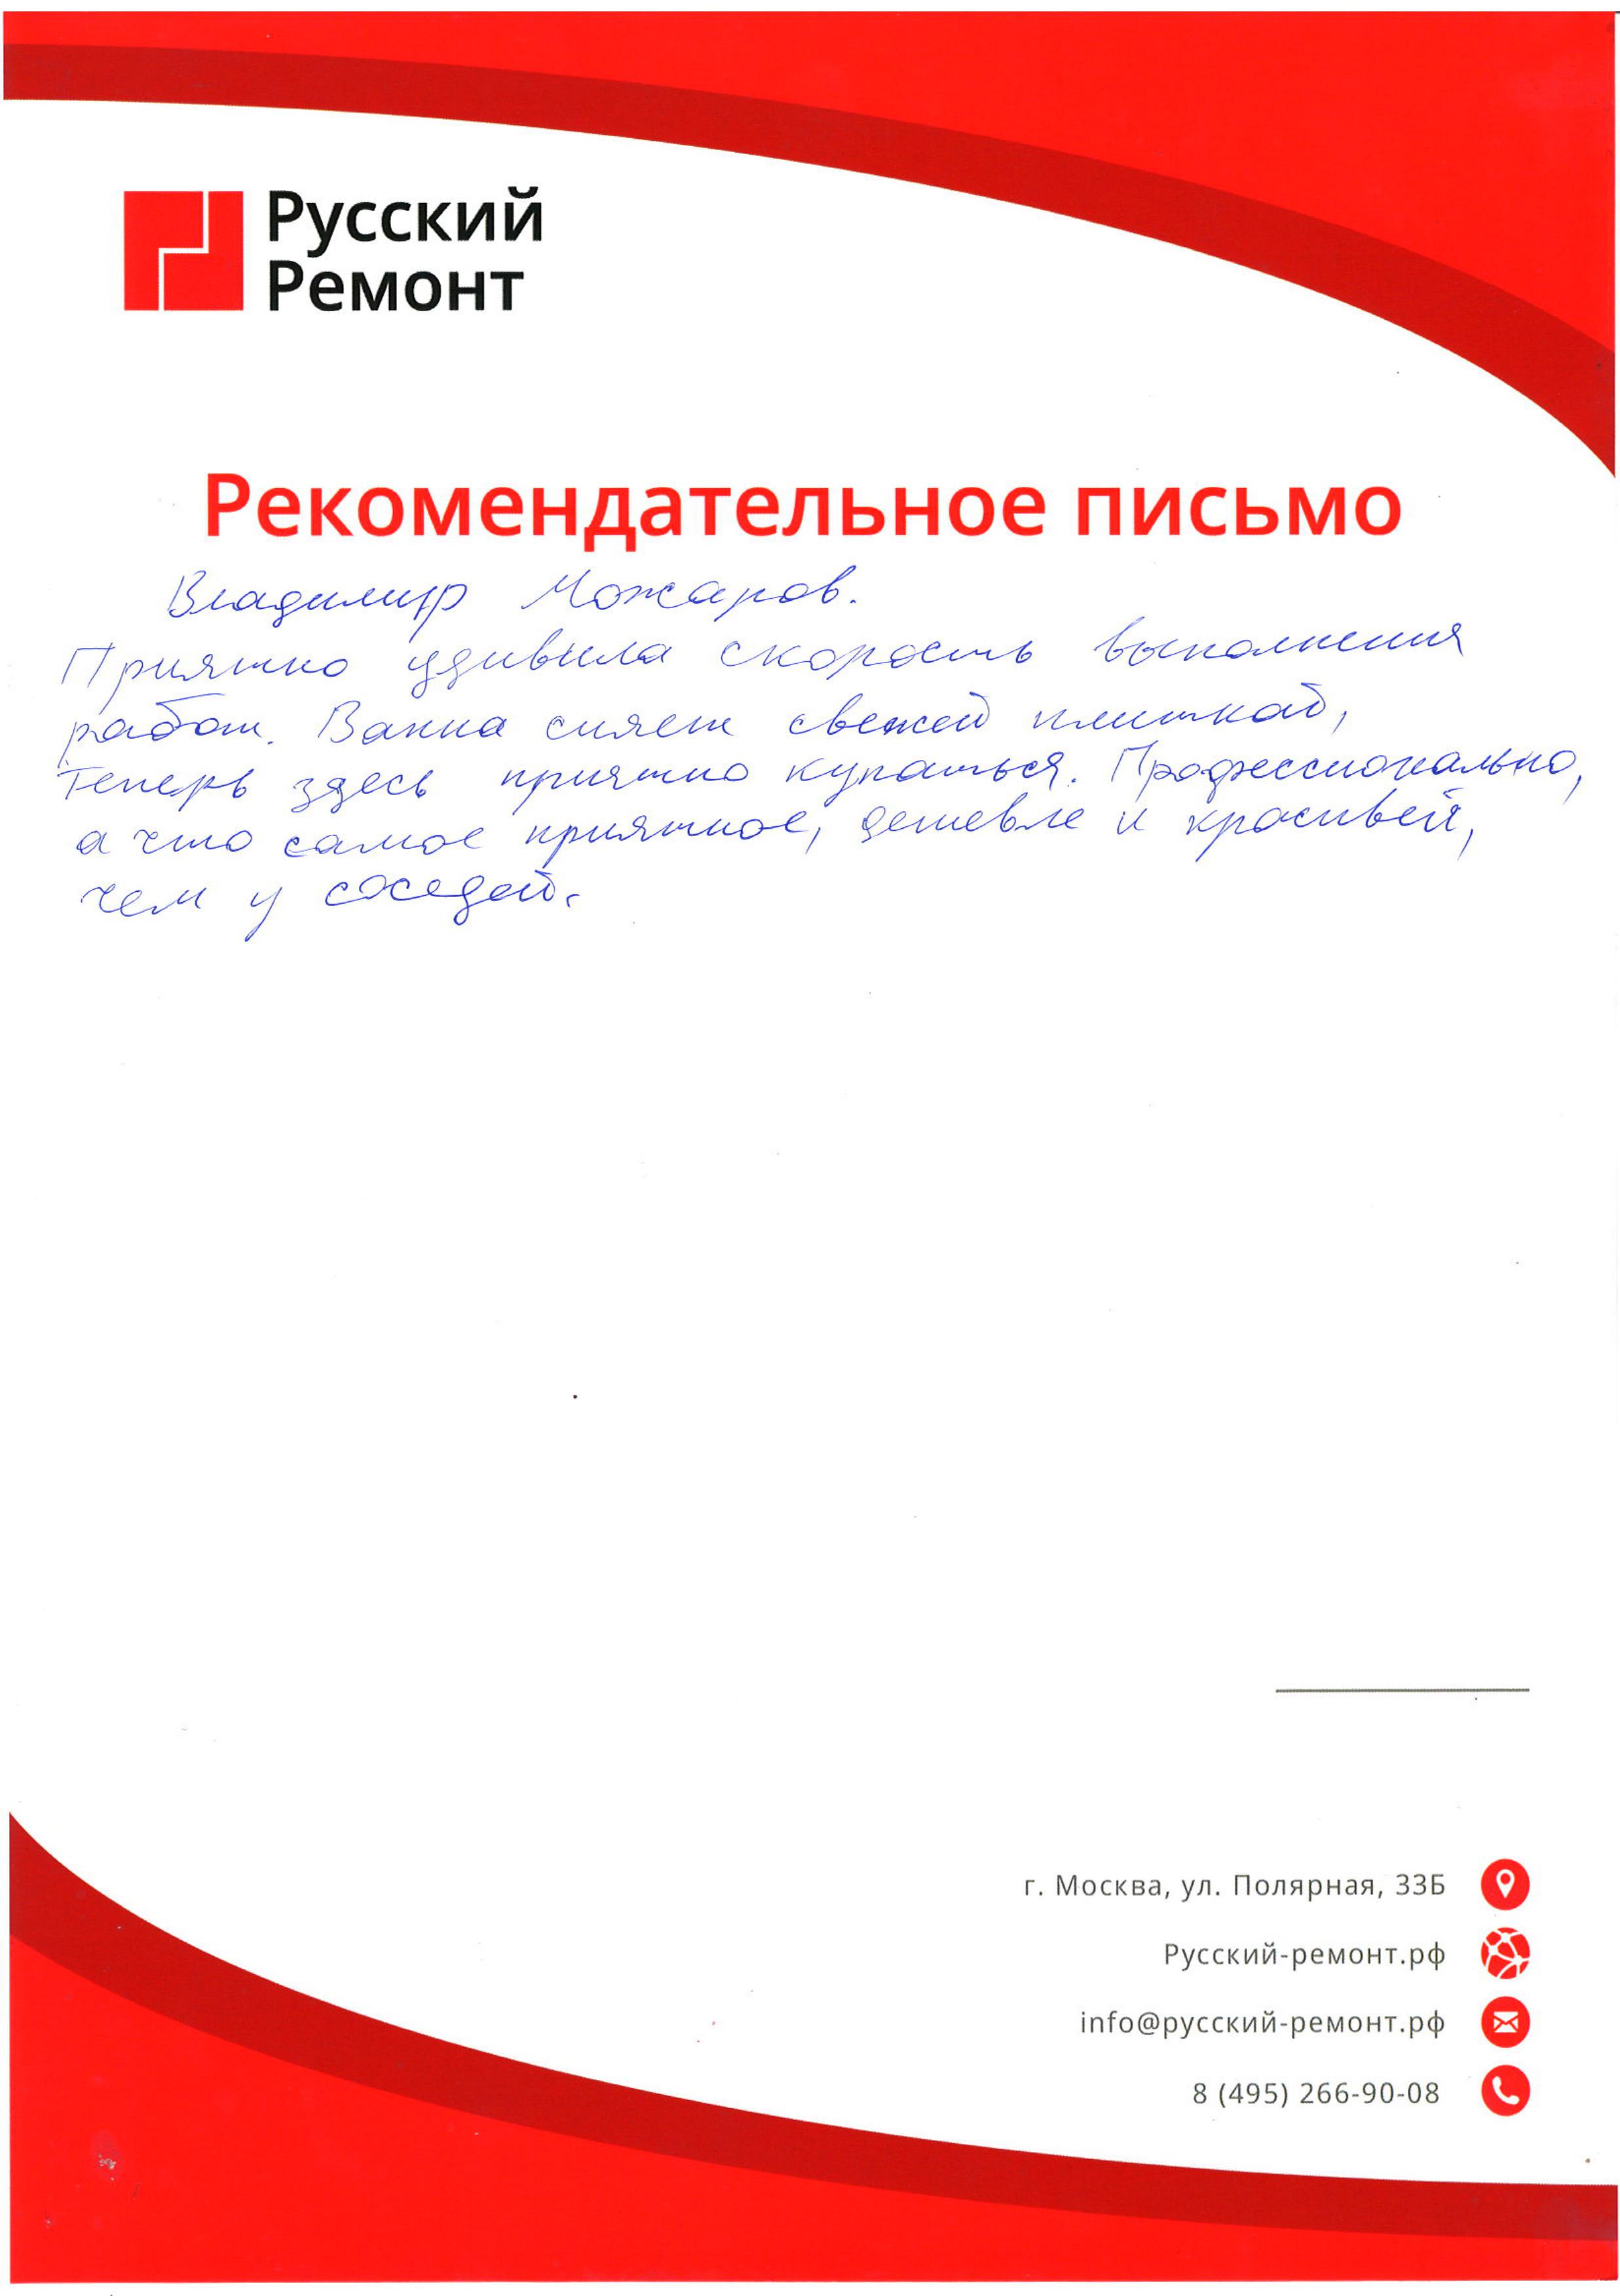 Русский
Ремонт
Рекомендательное письмо
Владимир Можаров.
Приятно удивила скорость выполнения
работ. Ванна сияет свежей плиткой,
теперь здесь приятно купаться. Профессионально,
а что самое приятное, дешевле и красивей,
чем у соседей.
г. Москва, ул. Полярная, 33Б
Русский-ремонт.рф
info@русский-ремонт.рф
8 (495) 266-90-08